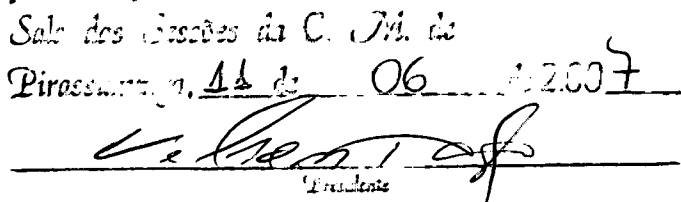 Sala das Sessões da C. M. de
Pirassununga, 11 de 06 de 2.007
Presidente